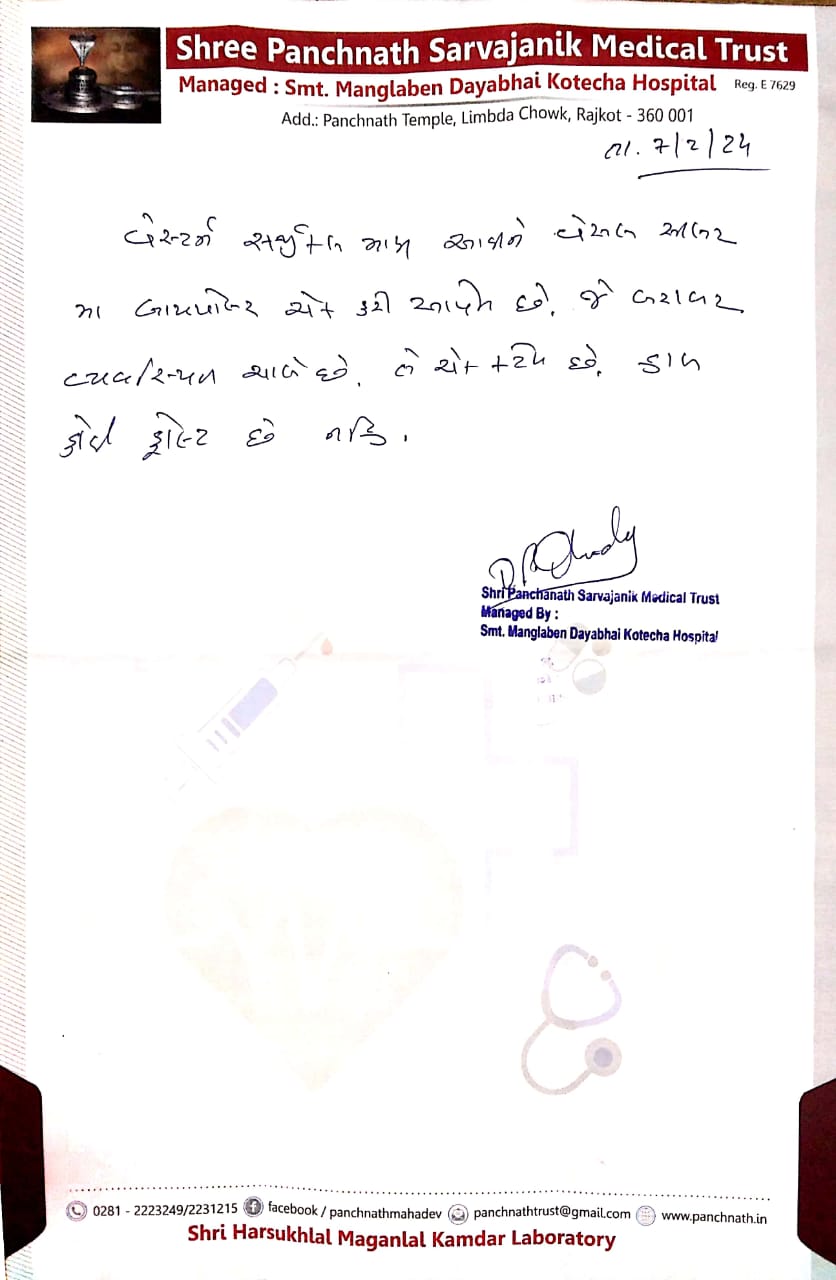 Shree Panchnath Sarvajanik Medical Trust
Managed : Smt. Manglaben Dayabhai Kotecha Hospital Reg. E 7629
Add.: Panchnath Temple, Limbda Chowk, Rajkot - 360 001
તા. 7/2/24
વેસ્ટર્ન સર્જીકલ માંથી આવીને સ્પેશ્યલ
મા બાયપોલર સેટ કરી આપેલ છે. જે બરાબર
વ્યવસ્થિત ચાલે છે. તે સેટ છે. કાંઈ
કોઈ ફોલ્ટ છે નહિ.
Shri Panchanath Sarvajanik Medical Trust
Managed By :
Smt. Manglaben Dayabhai Kotecha Hospital
0281 - 2223249/2231215 facebook / panchnathmahadev panchnathtrust@gmail.com www.panchnath.in
Shri Harsukhlal Maganlal Kamdar Laboratory